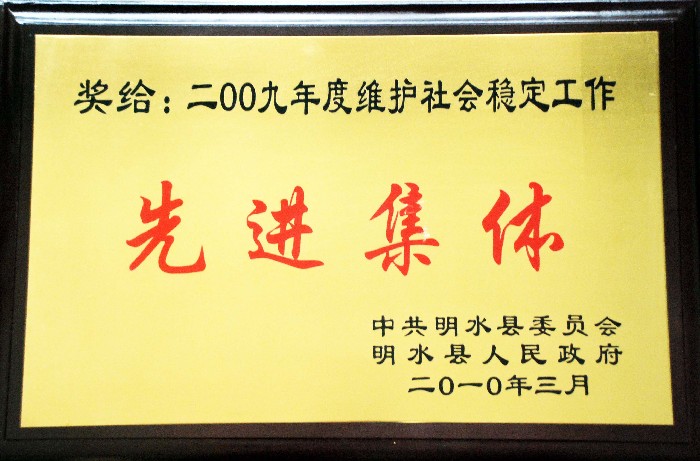 奖给：二OO九年度维护社会稳定工作
先进集体
中共明水县委员会
明水县人民政府
二O一O年三月